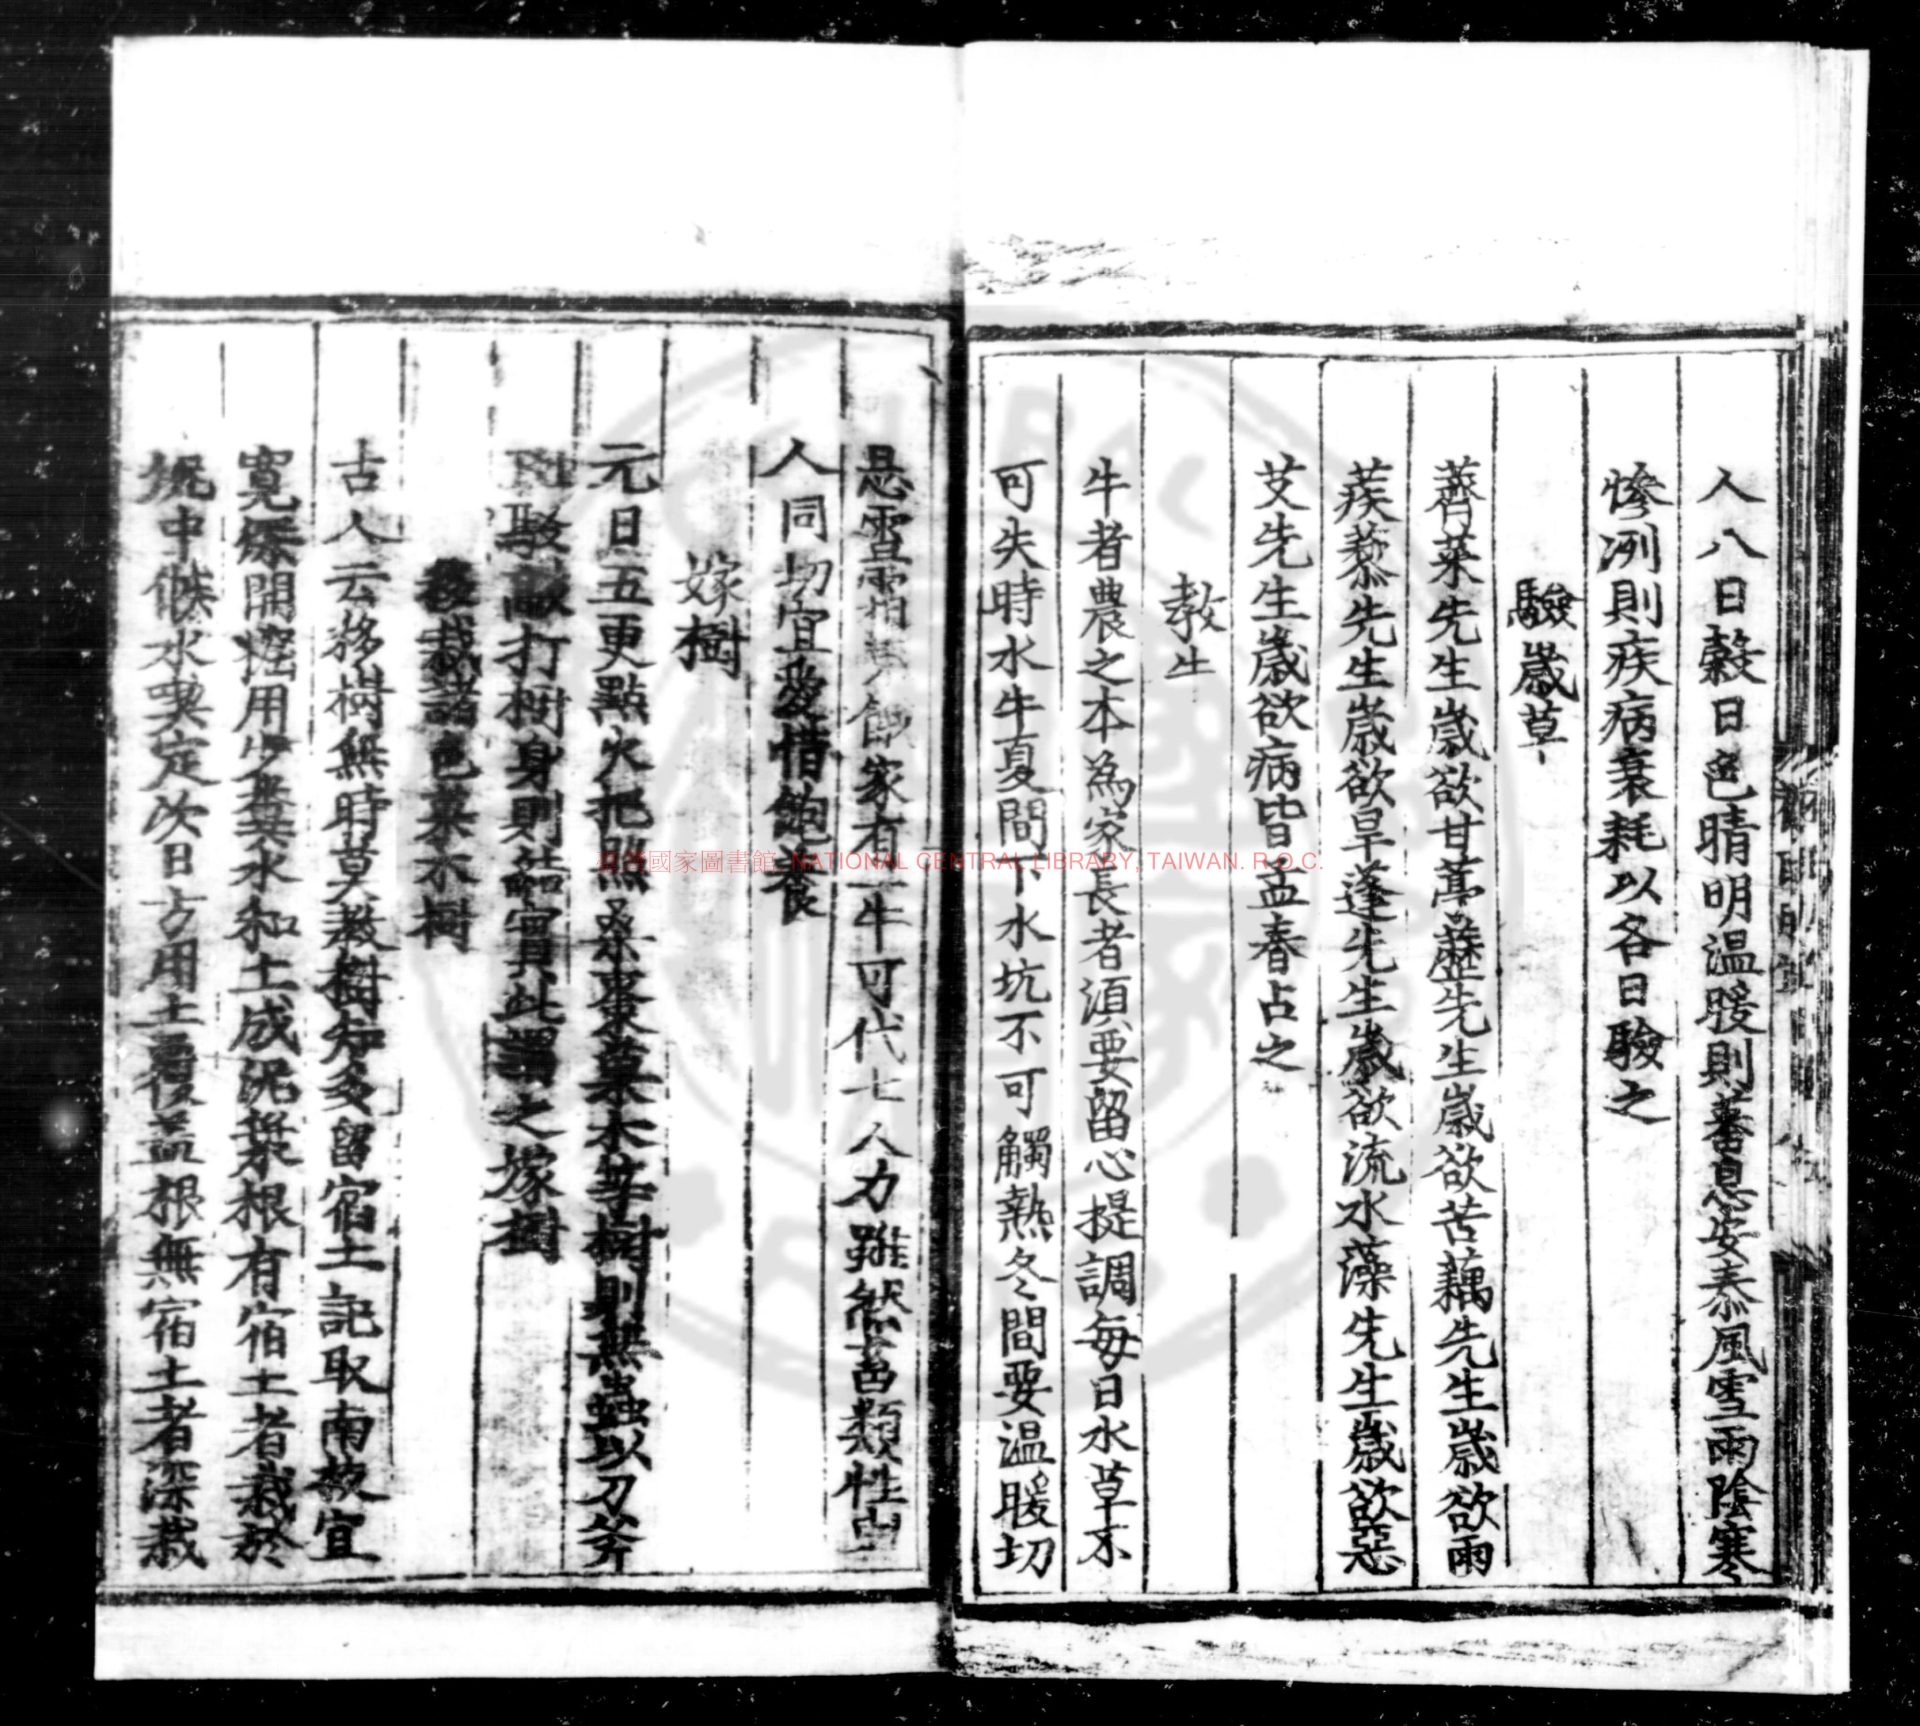 人八日穀日色晴明温暖則蕃息安泰風雪雨陰寒
慘冽則疾病衰耗以各日驗之
驗歲草
薺菜先生歲欲甘葶藶先生歲欲苦藕先生歲欲雨
蒺藜先生歲欲旱蓬先生歲欲流水藻先生歲欲惡
艾先生歲欲病皆孟春占之
教牛
牛者農之本為家長者須要留心提調每日水草不
可失時水牛夏間下水坑不可觸熱冬間要温暖切
忌雪霜 家有一牛可代七人力雖然畜類性
人同切宜愛惜飽養
嫁樹
元日五更點火把照桑棗菓木等樹則無蟲以刀斧
敲打樹身則結實此謂之嫁樹
栽諸色菓木樹
古人云移樹無時莫教樹知多留宿土記取南枝宜
寬深開掘用少糞水和土成泥漿根有宿土者栽於
坑中候水喫定次日方用土覆盖根無宿土者深栽
臺灣國家圖書館, NATIONAL CENTRAL LIBRARY, TAIWAN. R.O.C.